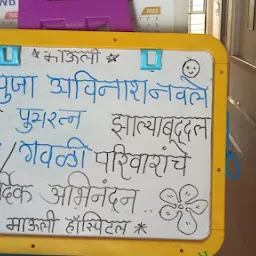 * माऊली *
पुजा अविनाश नवले
पुत्ररत्न झाल्याबद्दल
/ गवळी परिवारांचे
र्दिक अभिनंदन ..
माऊली हॉस्पिटल *